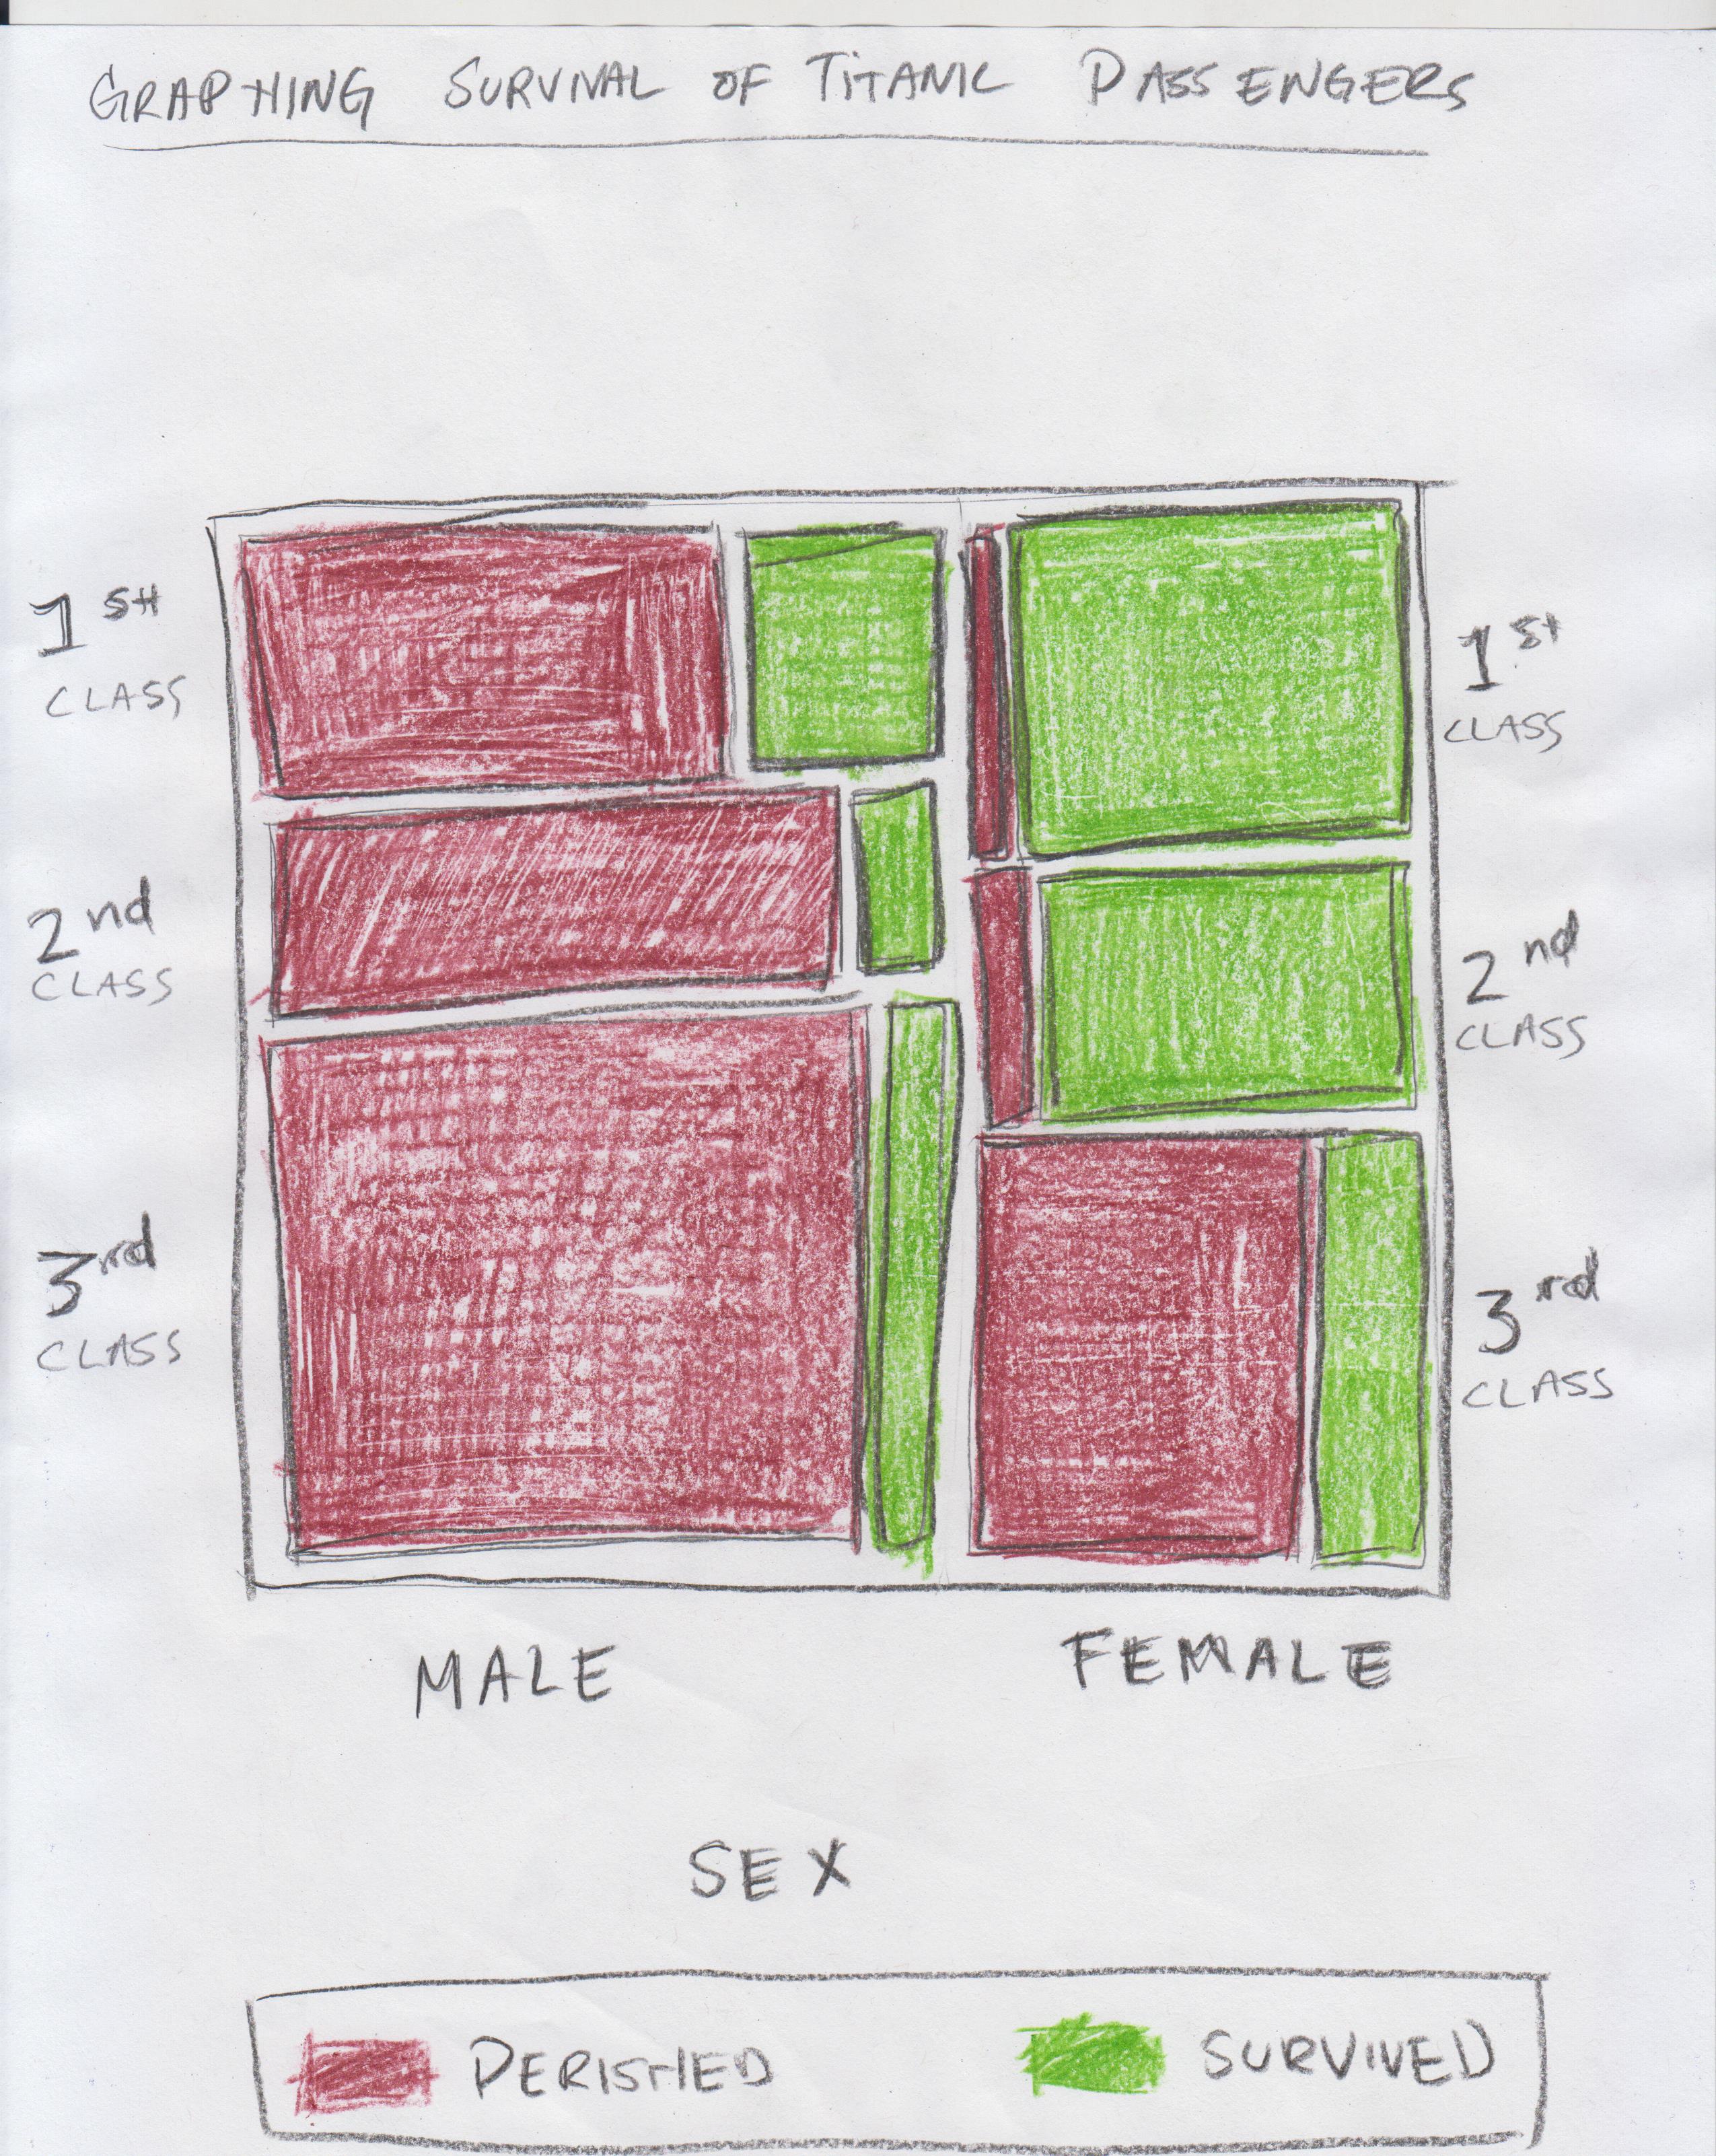 GRAPHING SURVIVAL OF TITANIC PASSENGERS
1st
CLASS
2nd
CLASS
3rd
CLASS
1st
CLASS
2nd
CLASS
3rd
CLASS
MALE FEMALE
SEX
PERISHED SURVIVED